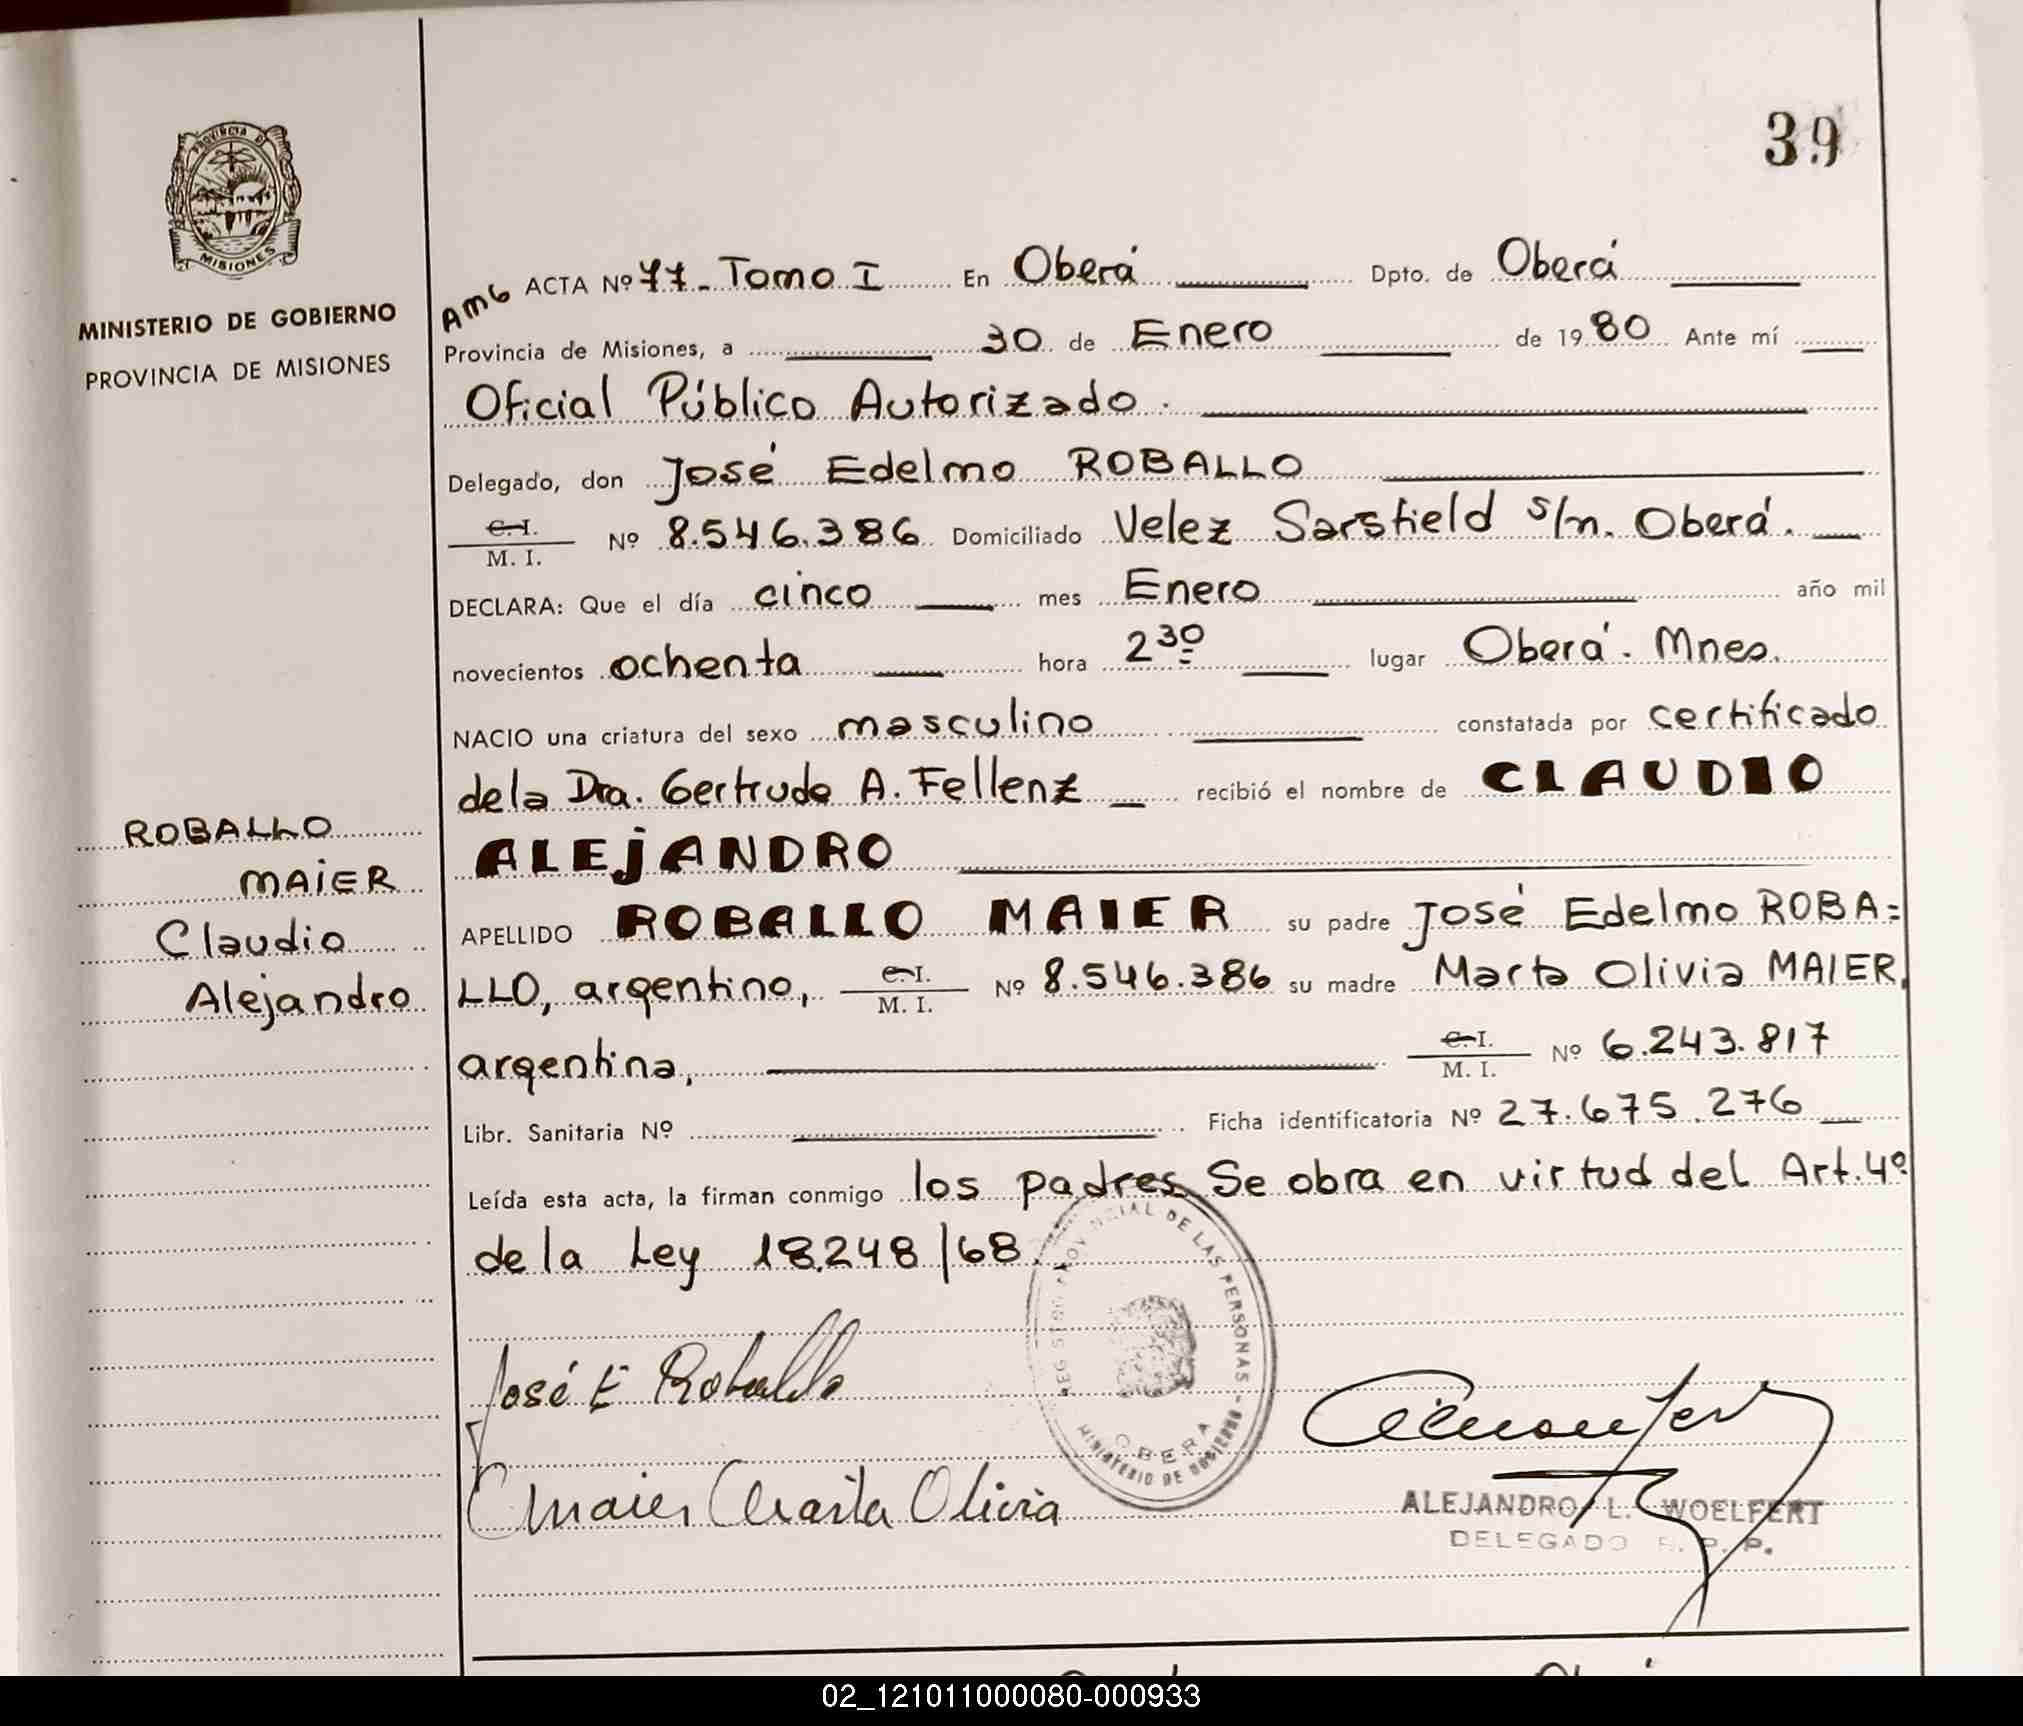 39
PROVINCIA DE
MISIONES
MINISTERIO DE GOBIERNO
PROVINCIA DE MISIONES
AMG ACTA Nº 77- Tomo I En Oberá Dpto. de Oberá
Provincia de Misiones, a 30 de Enero de 1980 Ante mí
Oficial Público Autorizado.
Delegado, don José Edelmo ROBALLO
C. I.
M. I. Nº 8.546.386 Domiciliado Velez Sarsfield s/n. Oberá.
DECLARA: Que el día cinco mes Enero año mil
novecientos ochenta hora 2 30 lugar Oberá. Mnes.
NACIO una criatura del sexo masculino constatada por certificado
de la Dra. Gertrudo A. Fellenz recibió el nombre de CLAUDIO
ALEJANDRO
APELLIDO ROBALLO MAIER su padre José Edelmo ROBA=
LLO, argentino, C. I. M. I. Nº 8.546.386 su madre Marta Olivia MAIER,
argentina, C. I. M. I. Nº 6.243.817
Libr. Sanitaria Nº Ficha identificatoria Nº 27.675.276
Leída esta acta, la firman conmigo los padres. Se obra en virtud del Art. 4º
de la Ley 18.248/68.
ROBALLO
MAIER
Claudio
Alejandro
José E Roballo
Maier Marta Olivia
REGISTRO PROVINCIAL DE LAS PERSONAS -
OBERA
MINISTERIO DE GOBIERNO
ALEJANDRO L. WOELFERT
DELEGADO R. P. P.
02_121011000080-000933